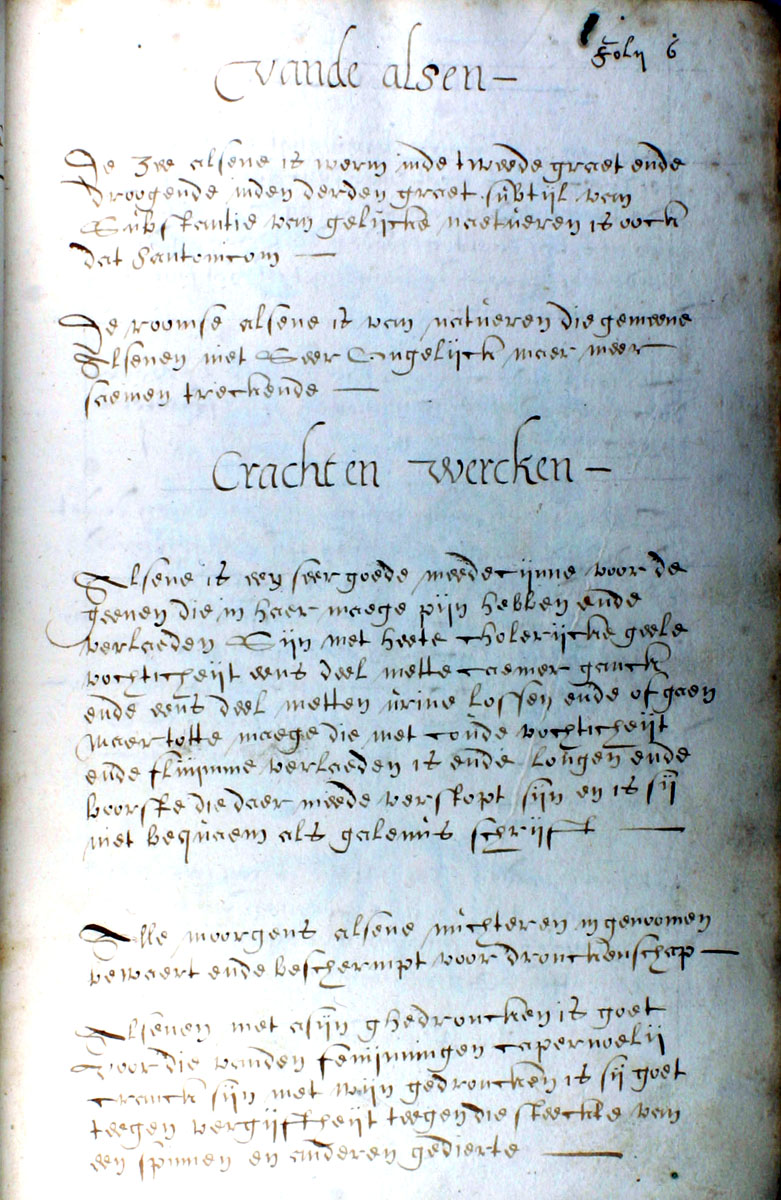 foly 6
vande alsen
De zee alsene is werm inde tweede graet ende
droogende inden derden graet subtijl van
Substantie van gelijcke naetueren is oock
dat santonicom
De roomse alsene is van natueren die gemeene
Alsenen niet Seer Ongelijck maer meer
saemen treckende
Cracht en wercken
Alsene is een seer goede meedecijnne voor de
geenen die in haer maege pijn hebben ende
verlaeden Sijn met heete cholerijcke geele
vochticheijt eens deel mette caemer ganck
ende eens deel metten urine lossen ende of gaen
Maer totte maege die met coude vochticheijt
ende fluijmme verlaeden is ende longen ende
borste die daer meede verstopt sijn en is sij
niet bequaem als galenus schrijft
Alle moorgens alsene nuchteren in genoomen
bewaert ende beschermpt voor dronckenschap
Alsenen met asijn ghedroncken is goet
voor die vanden fenijnningen capernoelij
cranck sijn met wijn gedroncken is sij goet
teegen vergijftheijt teegen die steeckte van
een spinnen en anderen gedierte